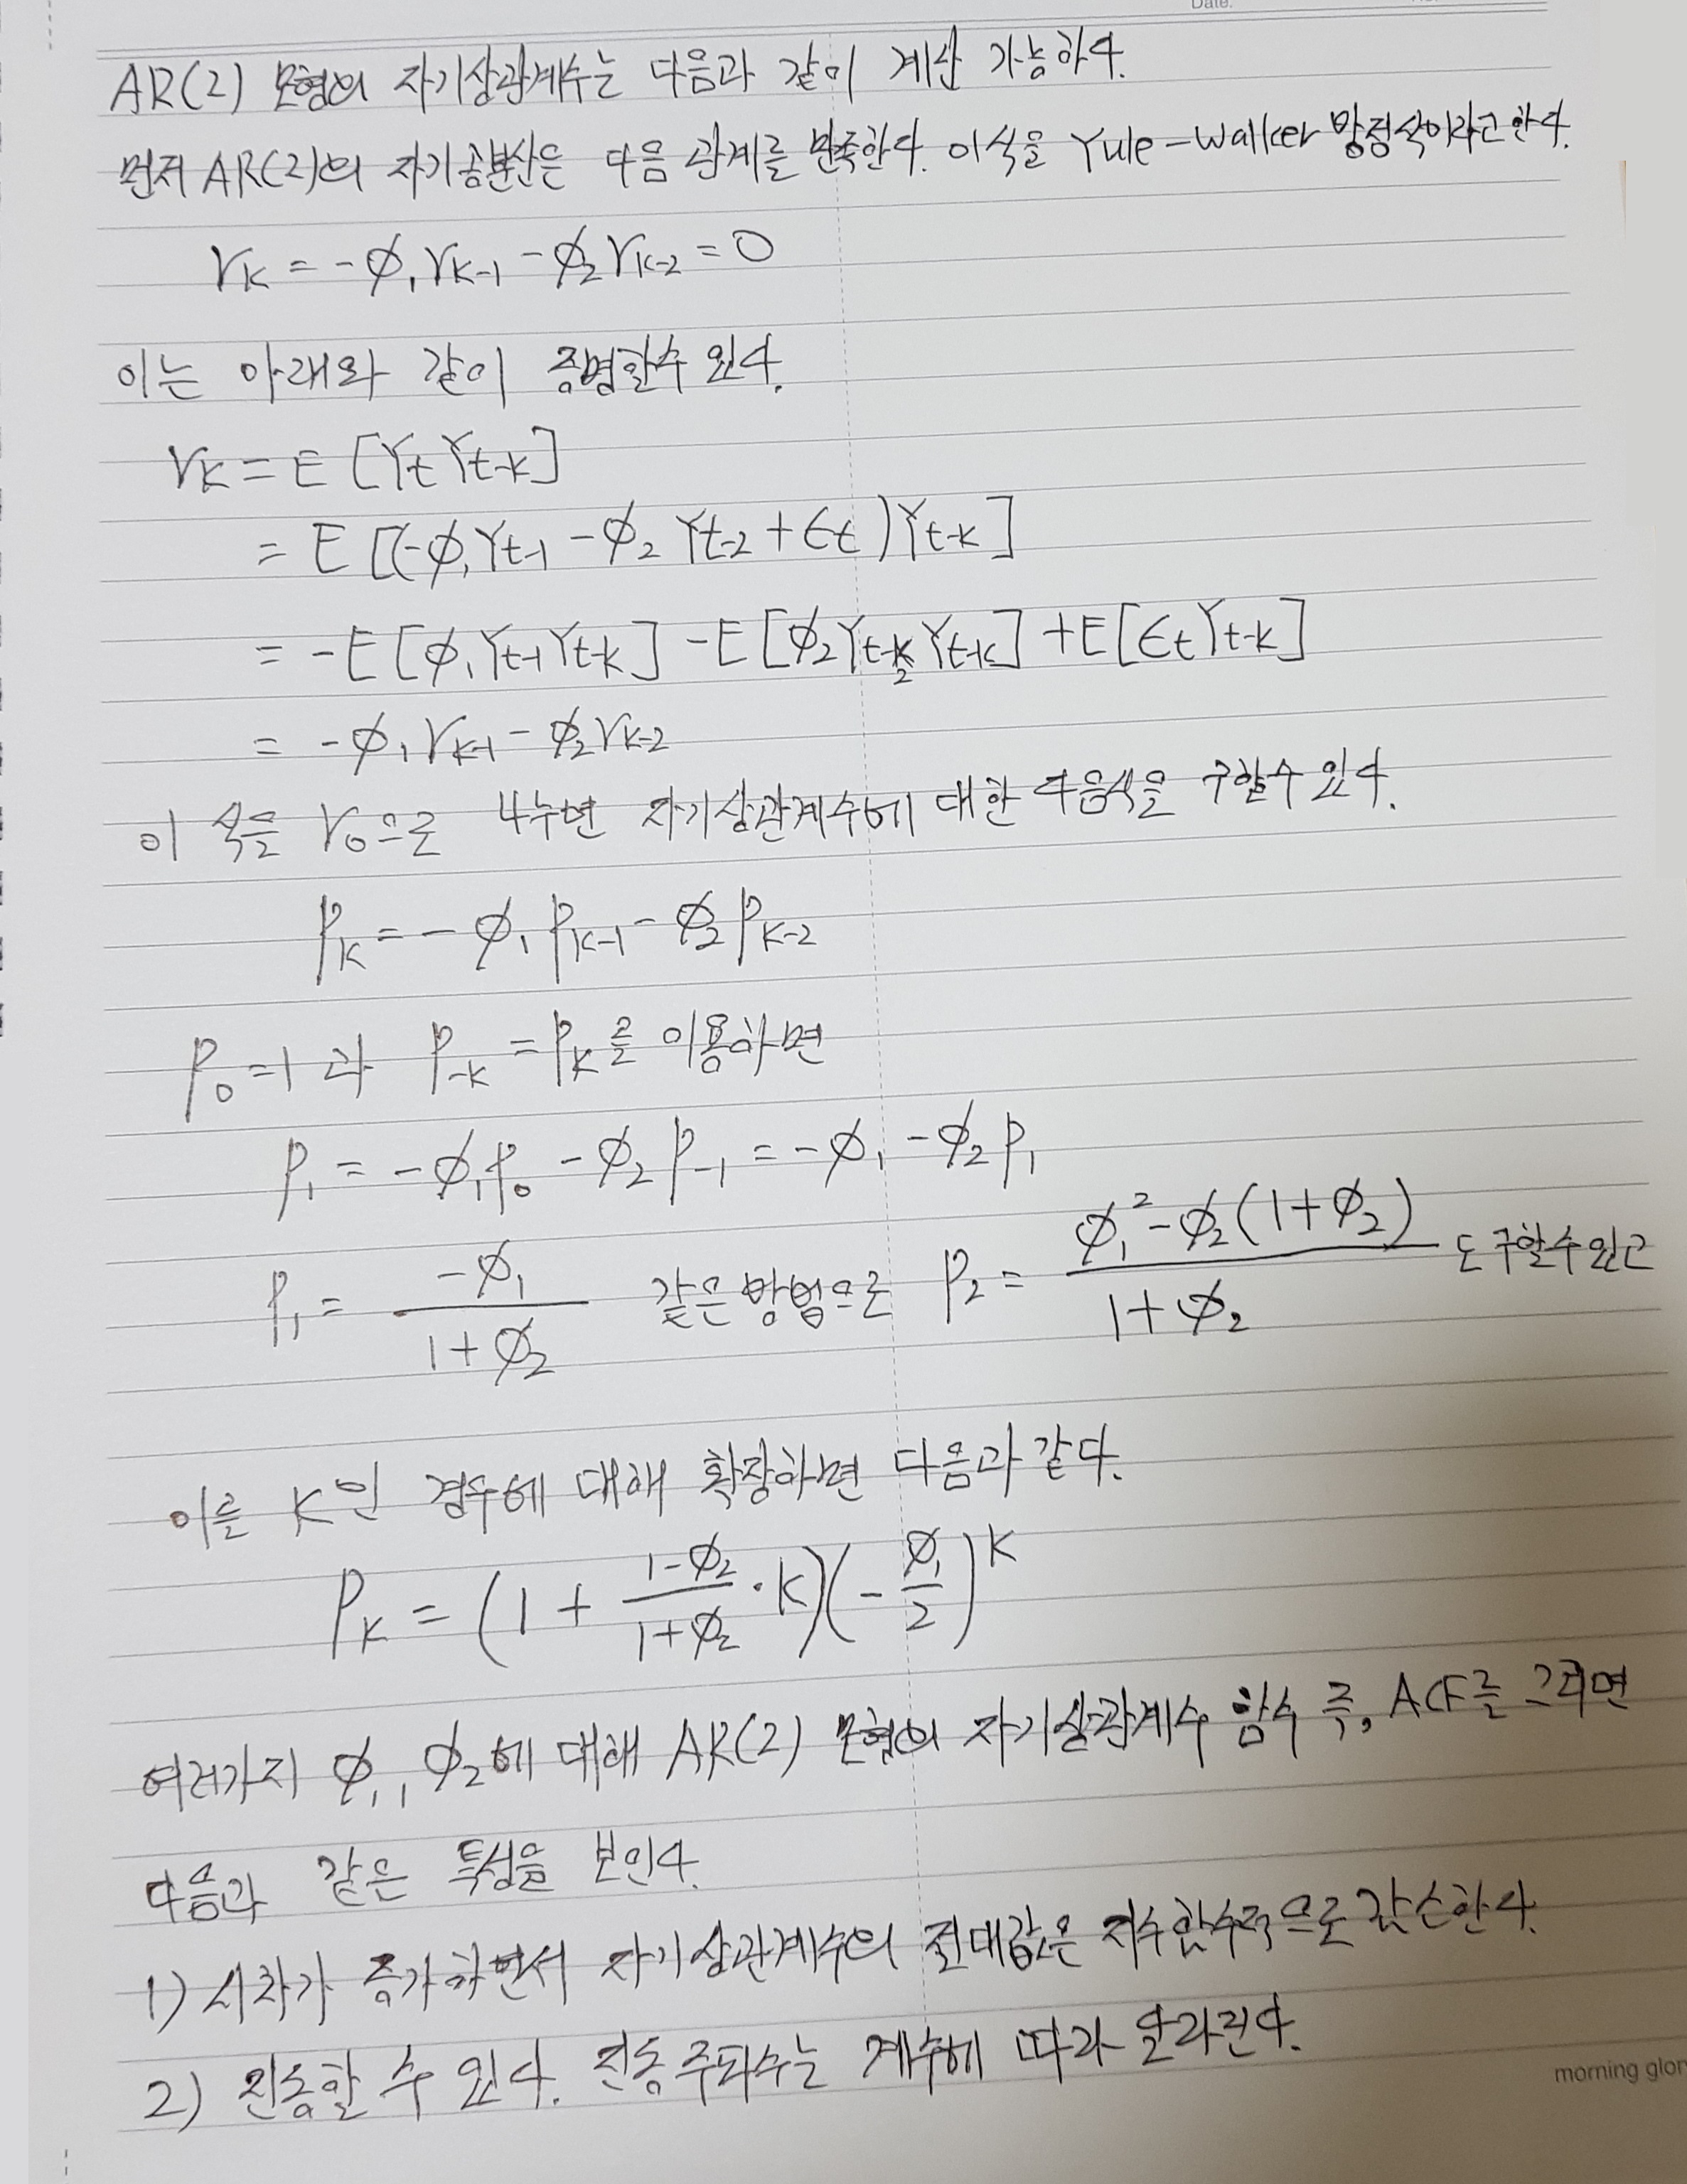 Date.
AR(2) 모형의 자기상관계수는 다음과 같이 계산 가능하다.
먼저 AR(2)의 자기공분산은 다음 관계를 만족한다. 이식을 Yule-Walker 방정식이라고 한다.
γk = -ϕ₁γk-1 - ϕ₂γk-2 = 0
이는 아래와 같이 증명할수 있다.
γk = E [Yt Yt-k]
= E [(-ϕ₁Yt-1 - ϕ₂ Yt-2 + ϵt) Yt-k]
= -E [ϕ₁Yt-1 Yt-k] - E [ϕ₂Yt-2 Yt-k] + E [ϵt Yt-k]
= -ϕ₁γk-1 - ϕ₂γk-2
이 식을 γ₀으로 나누면 자기상관계수에 대한 다음식을 구할수 있다.
ρk = -ϕ₁ρk-1 - ϕ₂ρk-2
ρ₀=1 과 ρ-k = ρk를 이용하면
ρ₁ = -ϕ₁ρ₀ - ϕ₂ρ-1 = -ϕ₁ - ϕ₂ρ₁
ρ₁ = -ϕ₁ / (1+ϕ₂) 같은 방법으로 ρ₂ = (ϕ₁² - ϕ₂(1+ϕ₂)) / (1+ϕ₂) 도 구할수있고
이를 K인 경우에 대해 확장하면 다음과 같다.
ρk = (1 + (1-ϕ₂)/(1+ϕ₂) · k)(-ϕ₁/2)^k
여러가지 ϕ₁, ϕ₂에 대해 AR(2) 모형의 자기상관계수 함수 즉, ACF를 그리면
다음과 같은 특성을 보인다.
1) 시차가 증가하면서 자기상관계수의 절대값은 지수함수적으로 감소한다.
2) 진동할 수 있다. 진동 주파수는 계수에 따라 달라진다.
morning glor